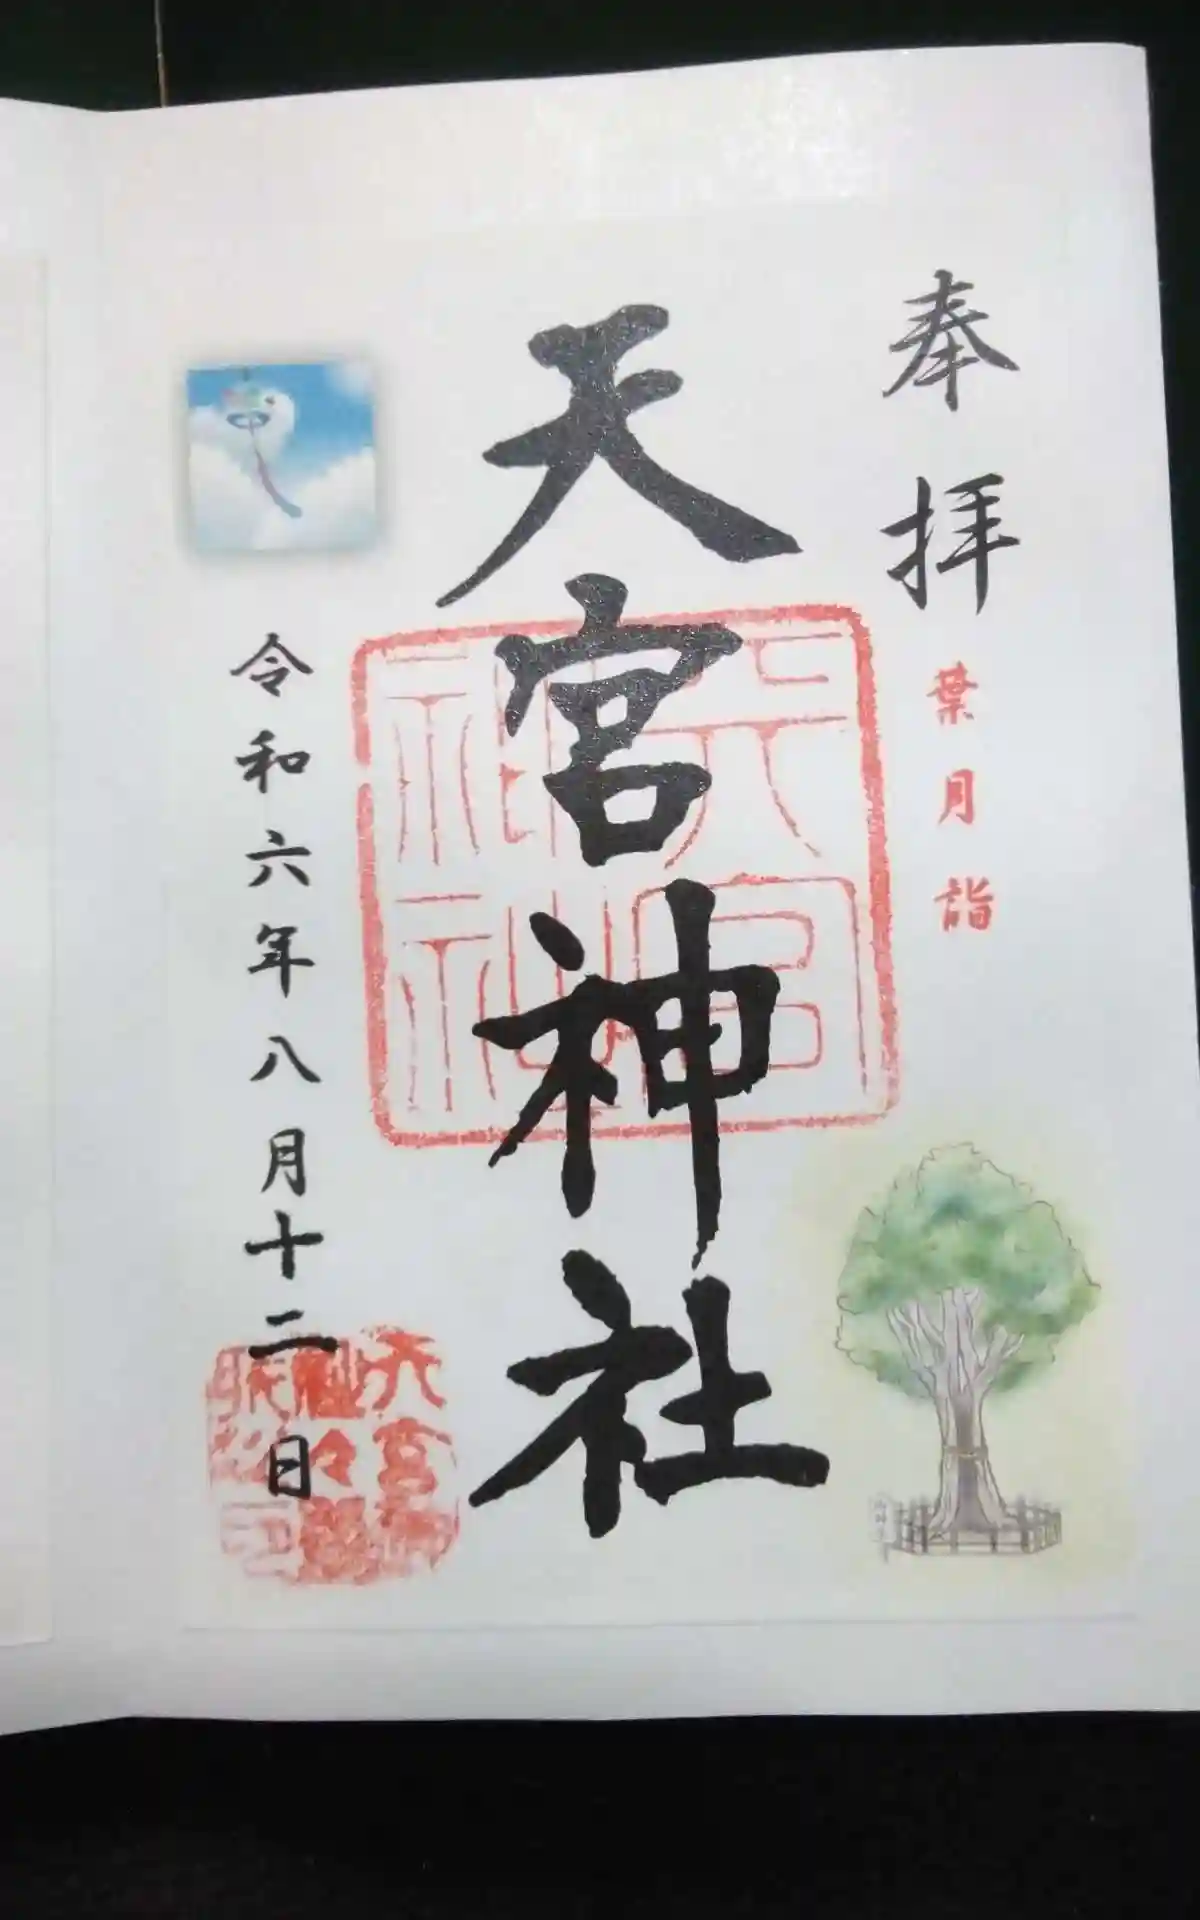 奉拝
葉月詣
天宮神社
天宮
神社
令和六年八月十二日